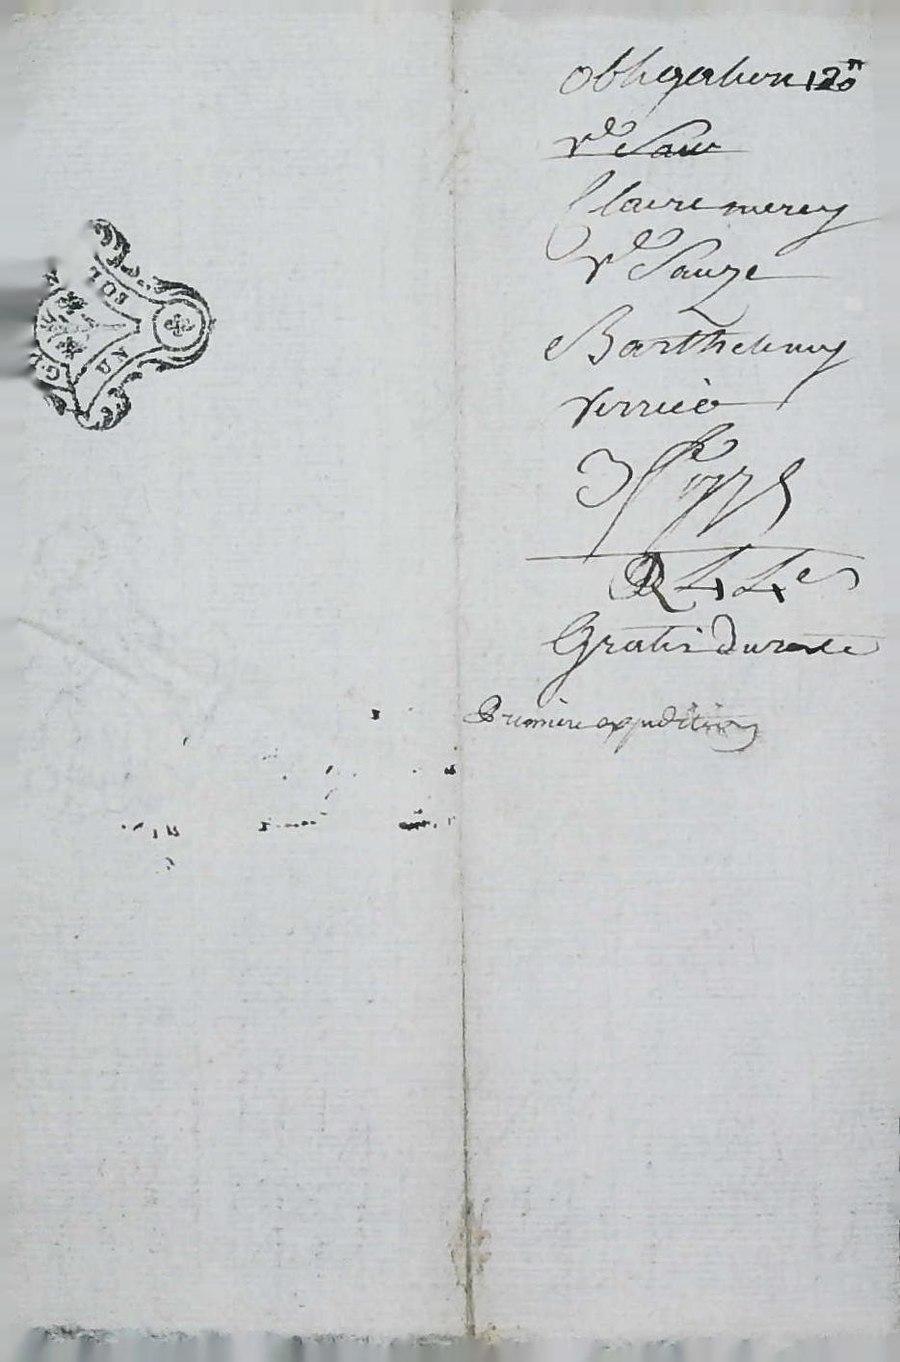 obligation 120 ₶
v.e Sau
Claire merey
v.e Sauze
Barthelemy
verrié
3 1775
R 4 4
Gratis Dureste
Premiere expedition
SOL
UN